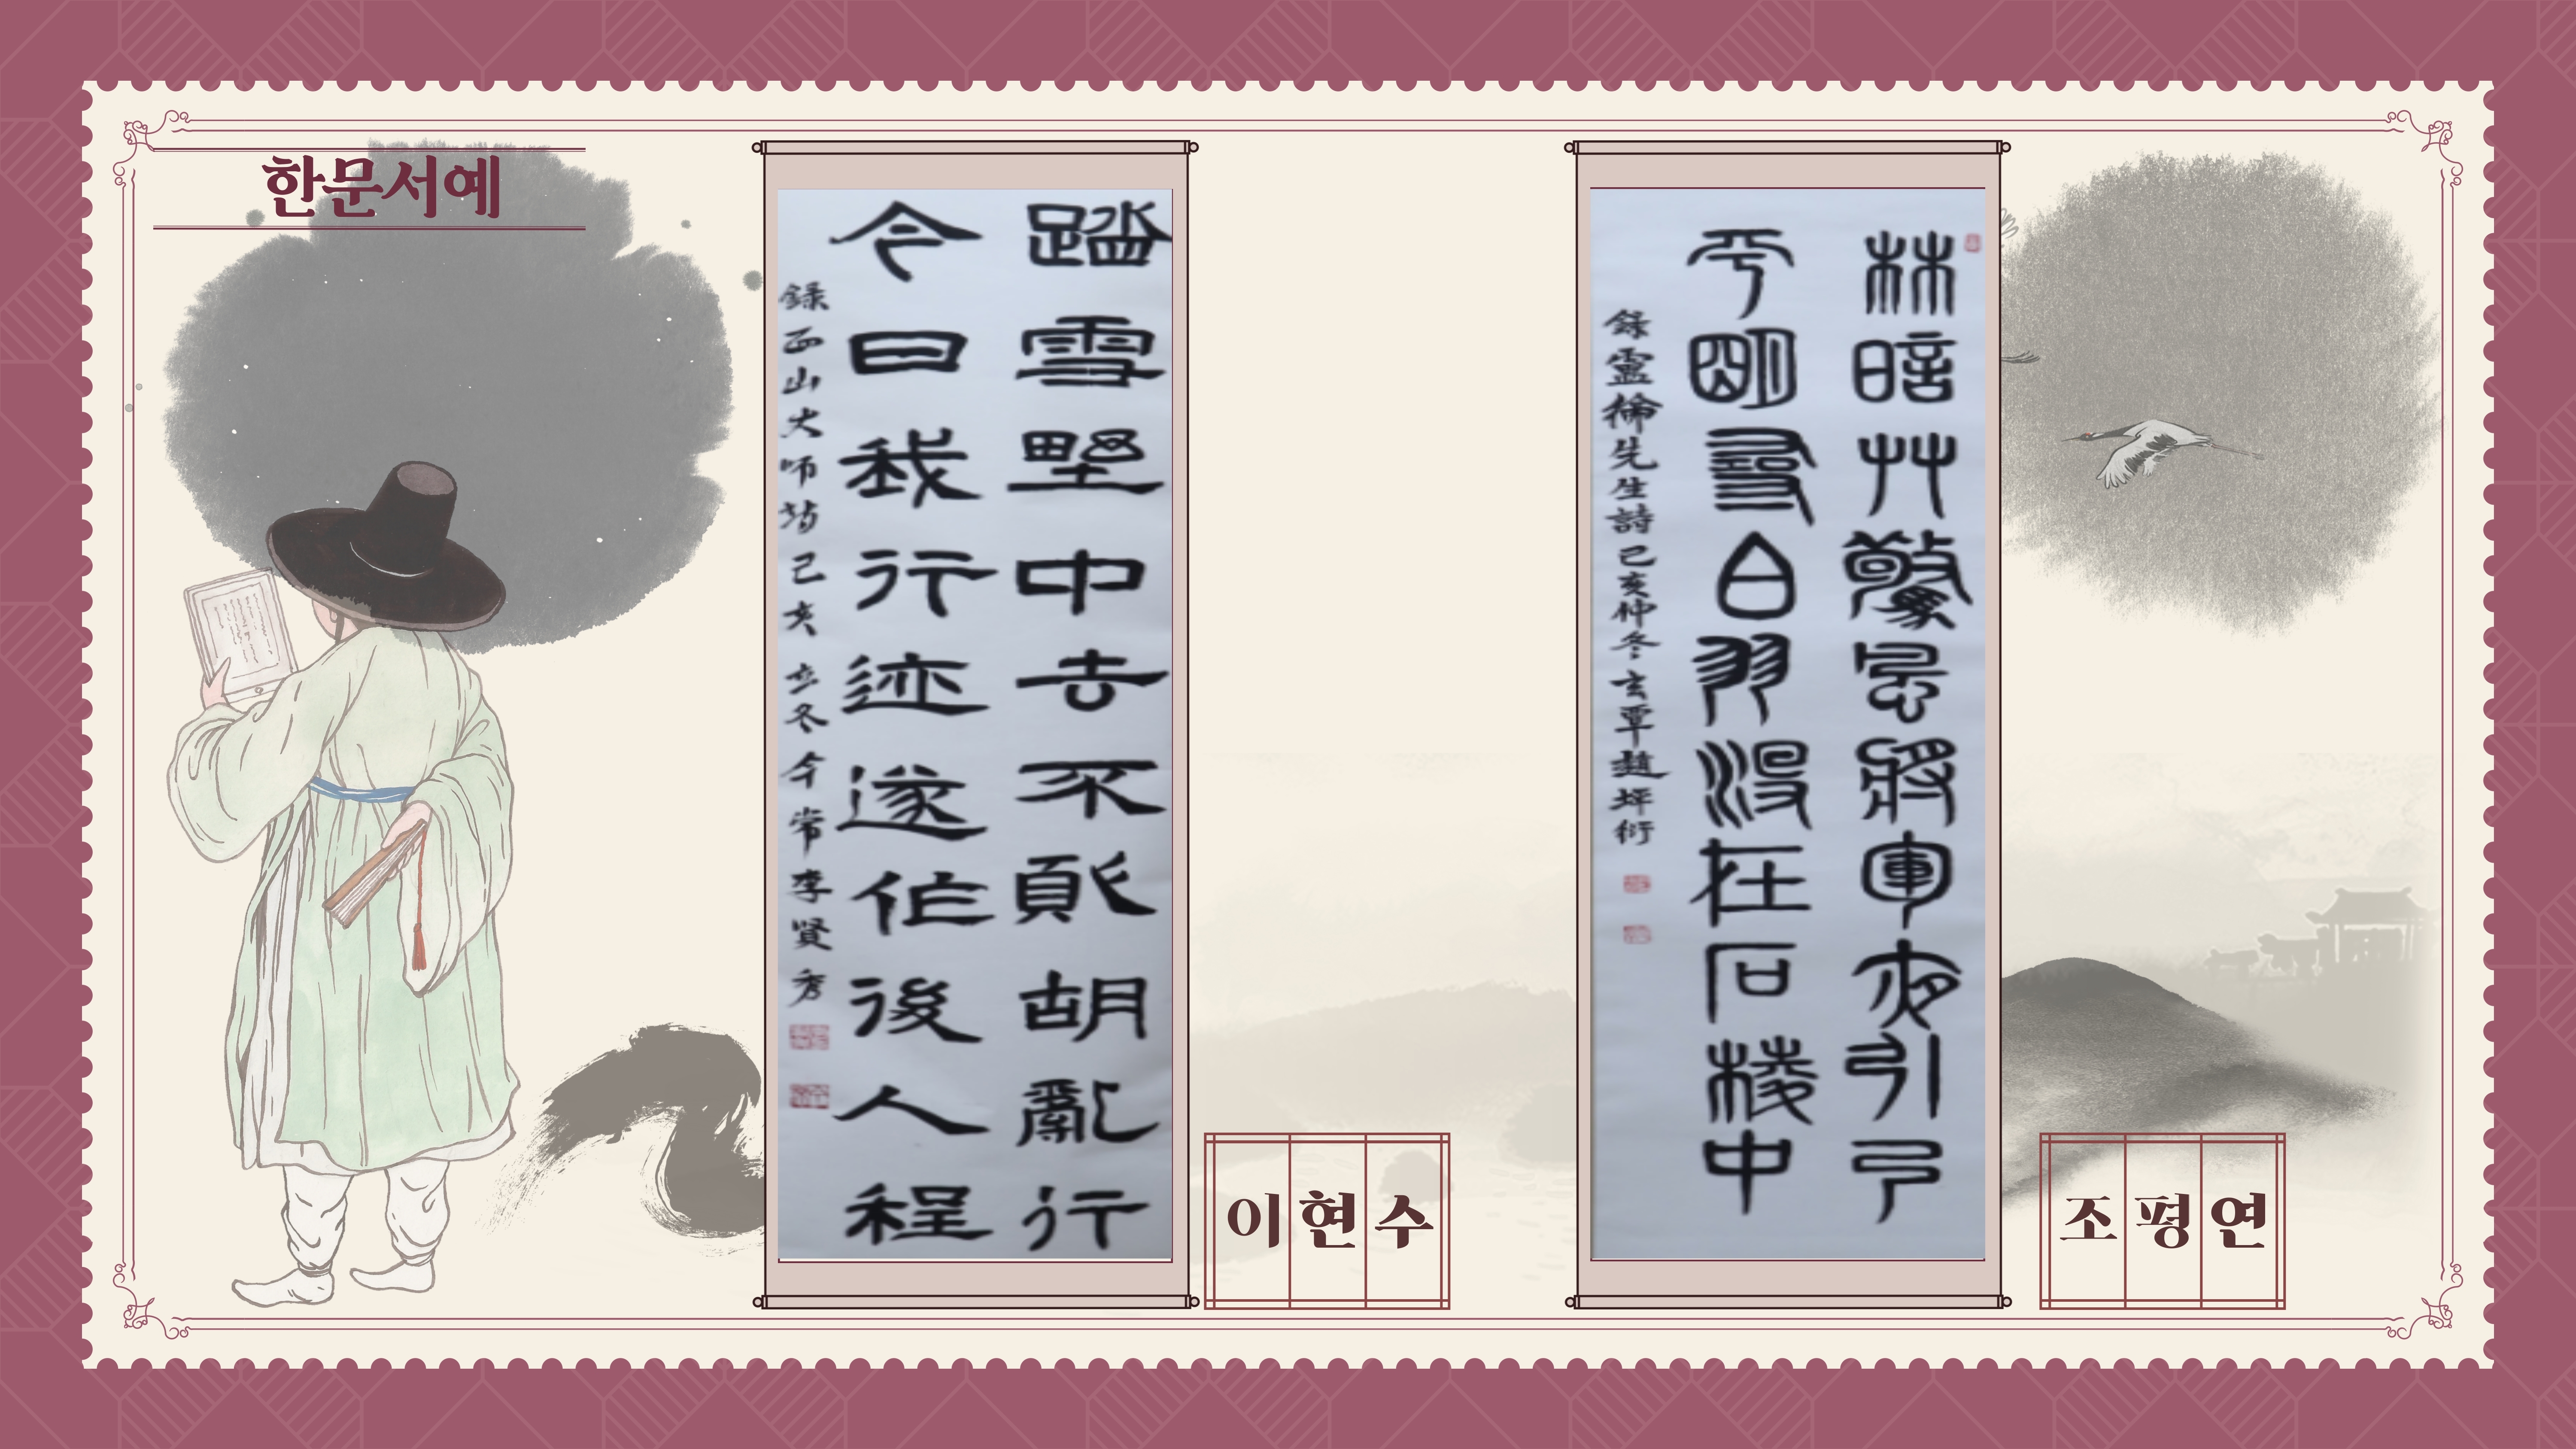 한문서예
踏雪野中去不須胡亂行
今日我行迹遂作後人程
録西山大師詩 己亥 立冬 今常 李賢秀
이현수
林暗艸驚風將軍夜引弓
平明尋白羽沒在石棱中
録盧綸先生詩己亥仲冬玄覃趙坪衍
조평연